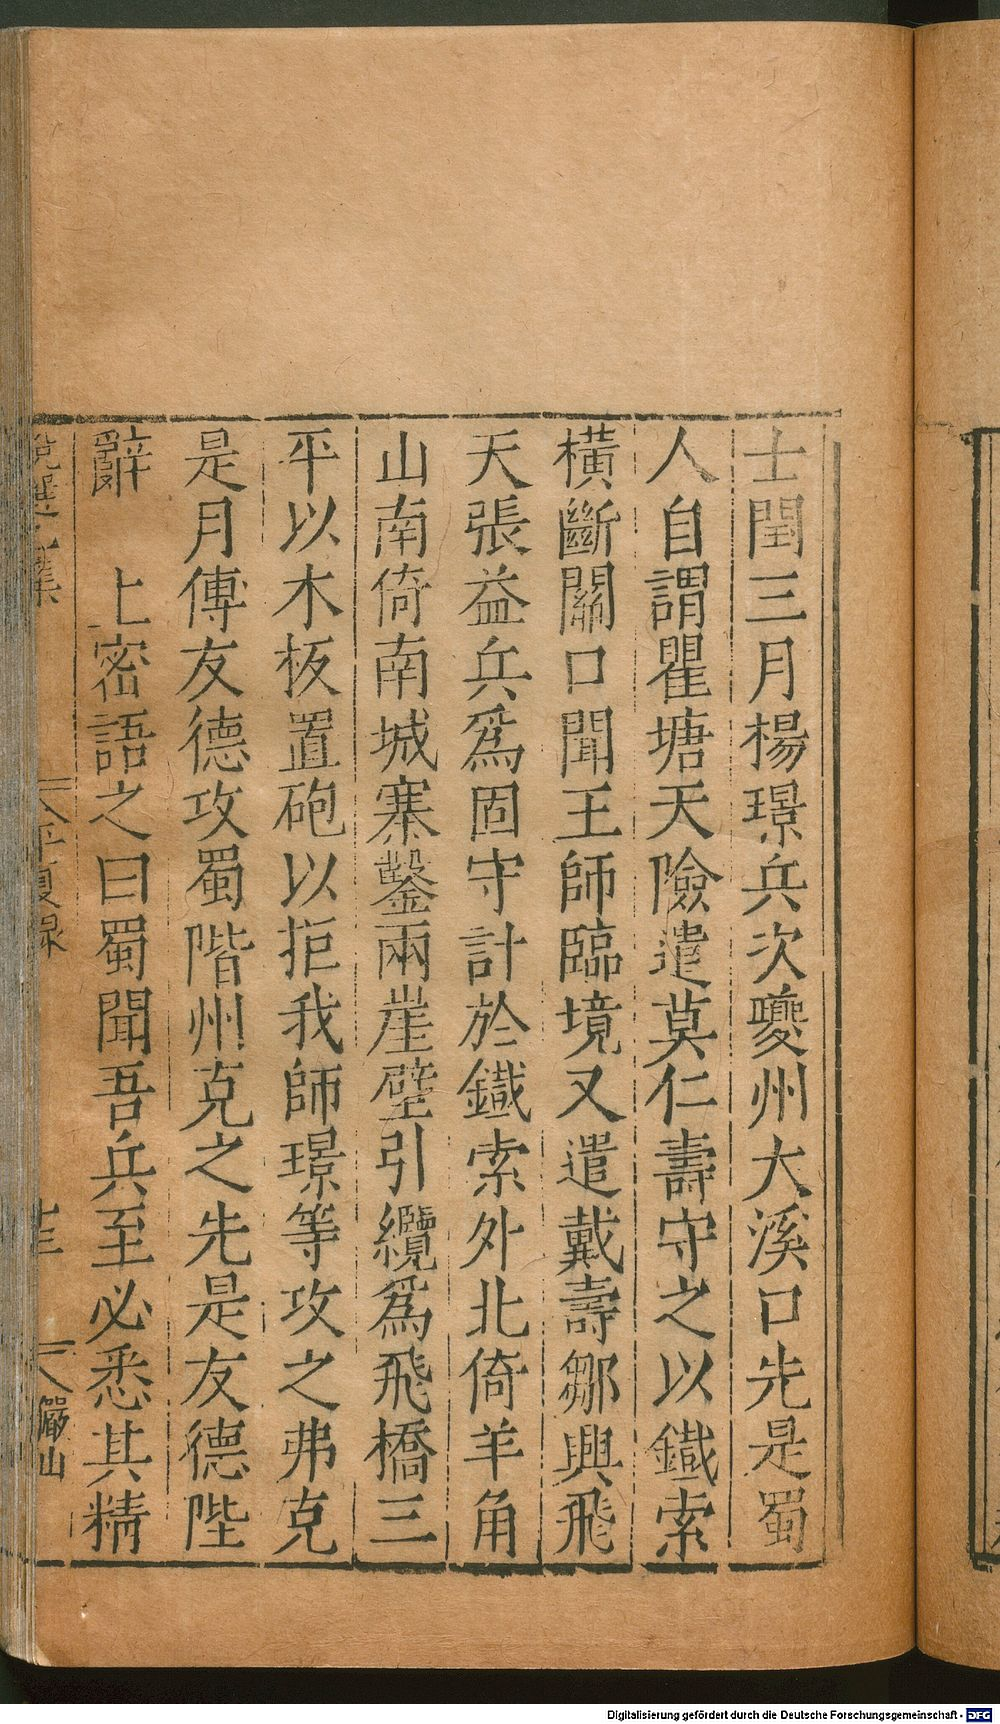 士閏三月楊璟兵次夔州大溪口先是蜀
人自謂瞿塘天險遣莫仁壽守之以鐵索
橫斷關口聞王師臨境又遣戴壽鄒興飛
天張益兵爲固守計於鐵索外北倚羊角
山南倚南城寨鑿兩崖壁引纜爲飛橋三
平以木板置砲以拒我師璟等攻之弗克
是月傅友德攻蜀階州克之先是友德陛
辭　上密語之曰蜀聞吾兵至必悉其精
平夏錄 十三 儼山
Digitalisierung gefördert durch die Deutsche Forschungsgemeinschaft - DFG